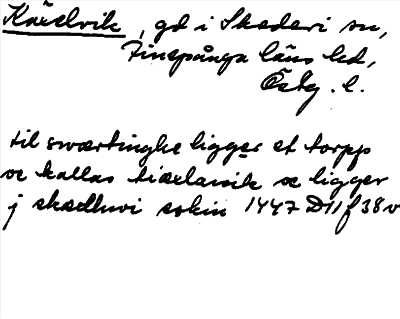 Kärelvik, gd i Skedevi sn,
Finspånga läns hd,
Östg. l.
til swærtinghe ligger et torpp
oc kallas tiærlawik oc ligger
j skædhwi sokin 1447 D11 f 38 v